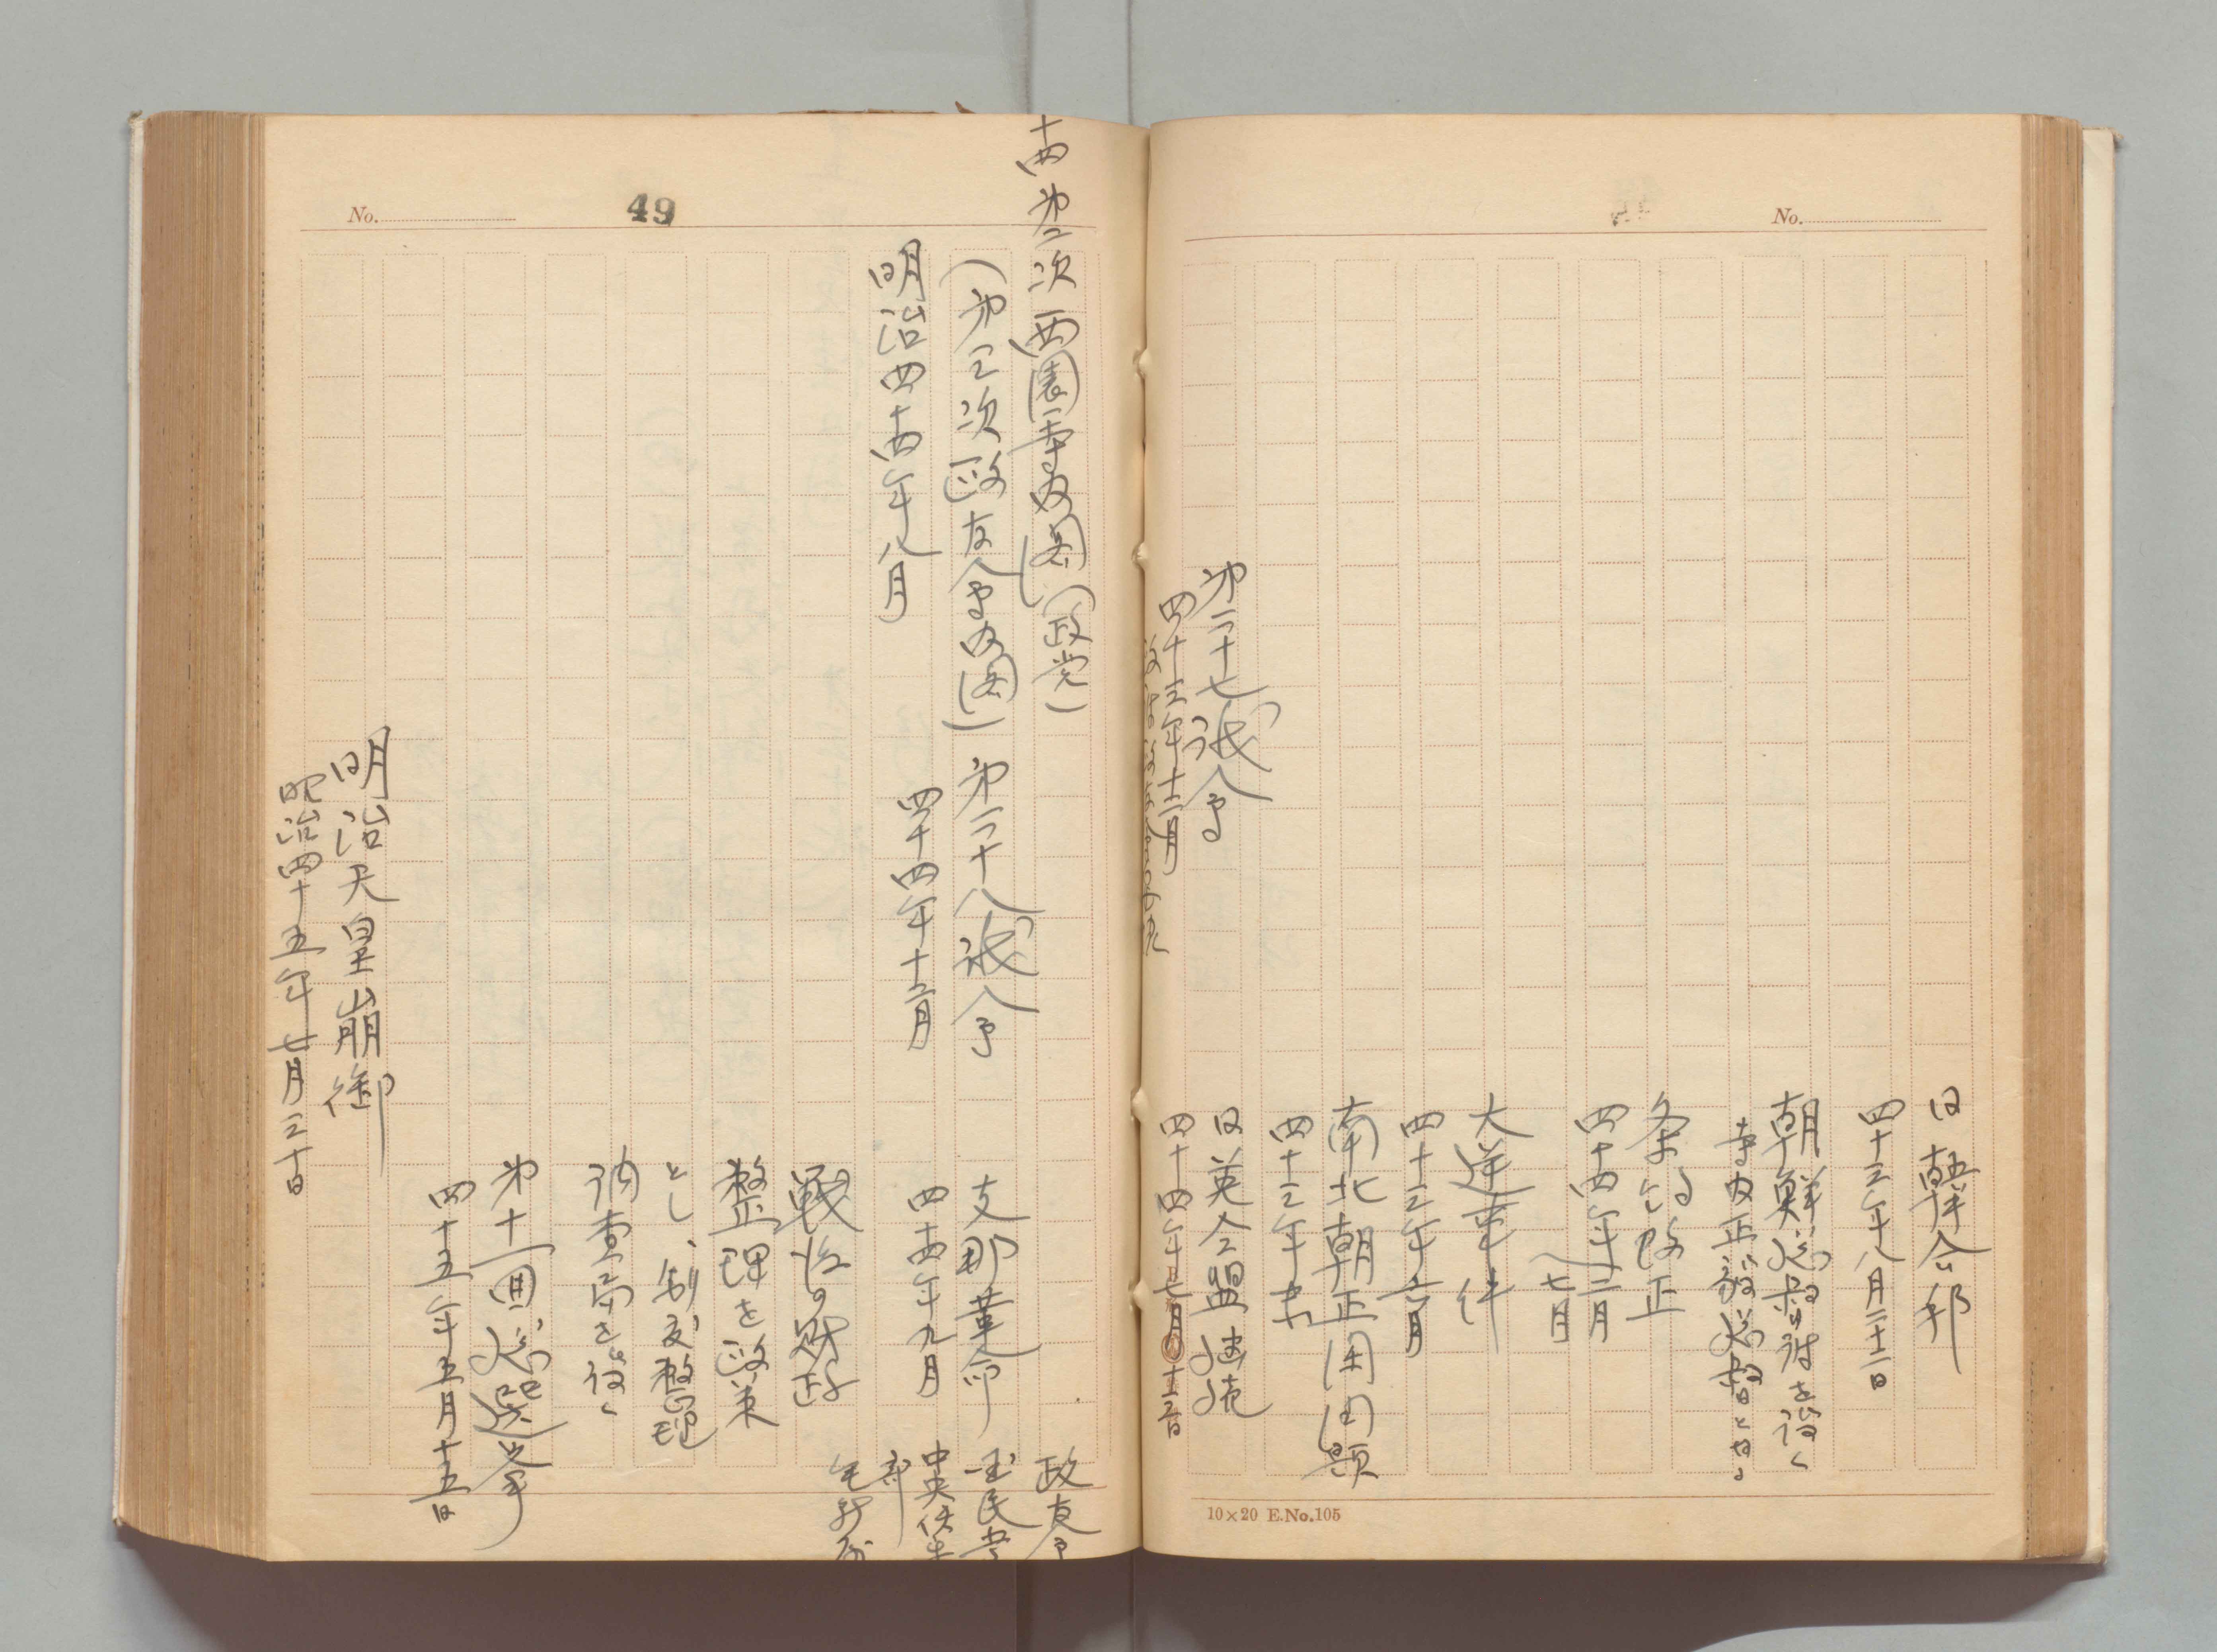 No.
日韓合邦
四十三年八月二十二日
朝鮮総督府を設く
寺内正毅総督となる
条約改正
四十四年二月
〜七月
大逆事件
四十三年六月
南北朝正閏問題
四十三年末
日英同盟継続
四十四年七月十三日
第二十七議会
四十三年十二月
10×20 E.No.105
No.
49
十四 第二次西園寺内閣(政党)
(第三次政友会内閣)
明治四十四年八月
第二十八議会
四十四年十二月
政友会
国民党
中央倶楽部
無所属
支那革命
四十四年九月
戦後の財政
整理を政策
とし、制度整理
調査局を設く
第十一回総選挙
四十五年五月十五日
明治天皇崩御
明治四十五年七月三十日